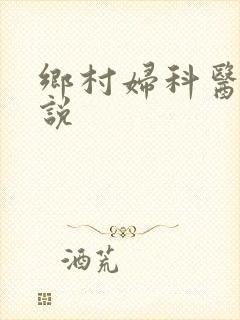 鄉村婦科醫
說
酒荒